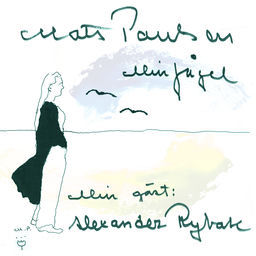 Mats Paulson
Min fågel
Min gäst:
Alexander Rybak
M.P